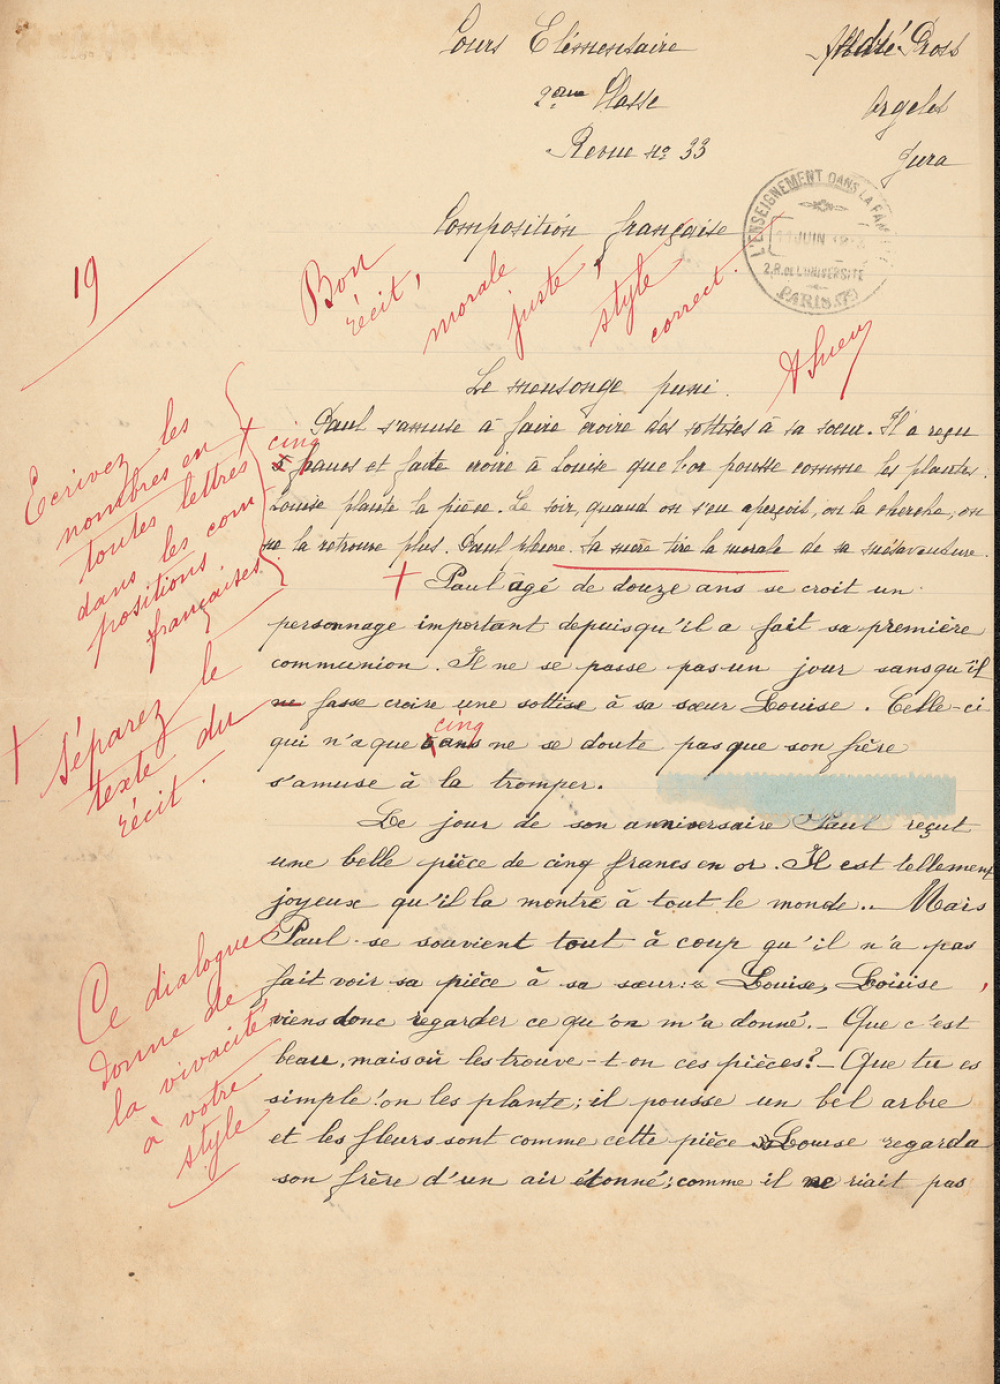 Cours Elémentaire
André Pross
2ème Classe
Orgelet
Revue No 33
Jura
L'ENSEIGNEMENT DANS LA FAM
JUIN
2, R. DE L'UNIVERSITÉ
PARIS
Composition française
19
Bon récit, morale juste, style correct.
Le mensonge puni.
Paul s'amuse à faire croire des sottises à sa sœur. Il a reçu
cinq
5 francs et faite croire à Louise que l'or pousse comme les plantes.
Louise plante la pièce. Le soir, quand on s'en aperçoit, on la cherche; on
ne la retrouve plus. Paul pleure. Sa mère tire la morale de sa mésaventure.
Ecrivez les
nombres en
toutes lettres
dans les com
positions
françaises.
+ Paul âgé de douze ans se croit un
personnage important depuis qu'il a fait sa première
communion. Il ne se passe pas un jour sans qu'il
ne fasse croire une sottise à sa sœur Louise. Celle-ci
cinq
qui n'a que 5 ans ne se doute pas que son frère
s'amuse à la tromper.
+ Séparez le
texte du
récit.
Le jour de son anniversaire Paul reçut
une belle pièce de cinq francs en or. Il est tellement
joyeux qu'il la montre à tout le monde.. Mais
Paul se souvient tout à coup qu'il n'a pas
fait voir sa pièce à sa sœur: « Louise, Louise,
viens donc regarder ce qu'on m'a donné. _ Que c'est
beau, mais où les trouve-t-on ces pièces? _ Que tu es
simple! on les plante; il pousse un bel arbre
et les fleurs sont comme cette pièce » Louise regarda
son frère d'un air étonné; comme il ne riait pas
Ce dialogue
donne de
la vivacité
à votre
style